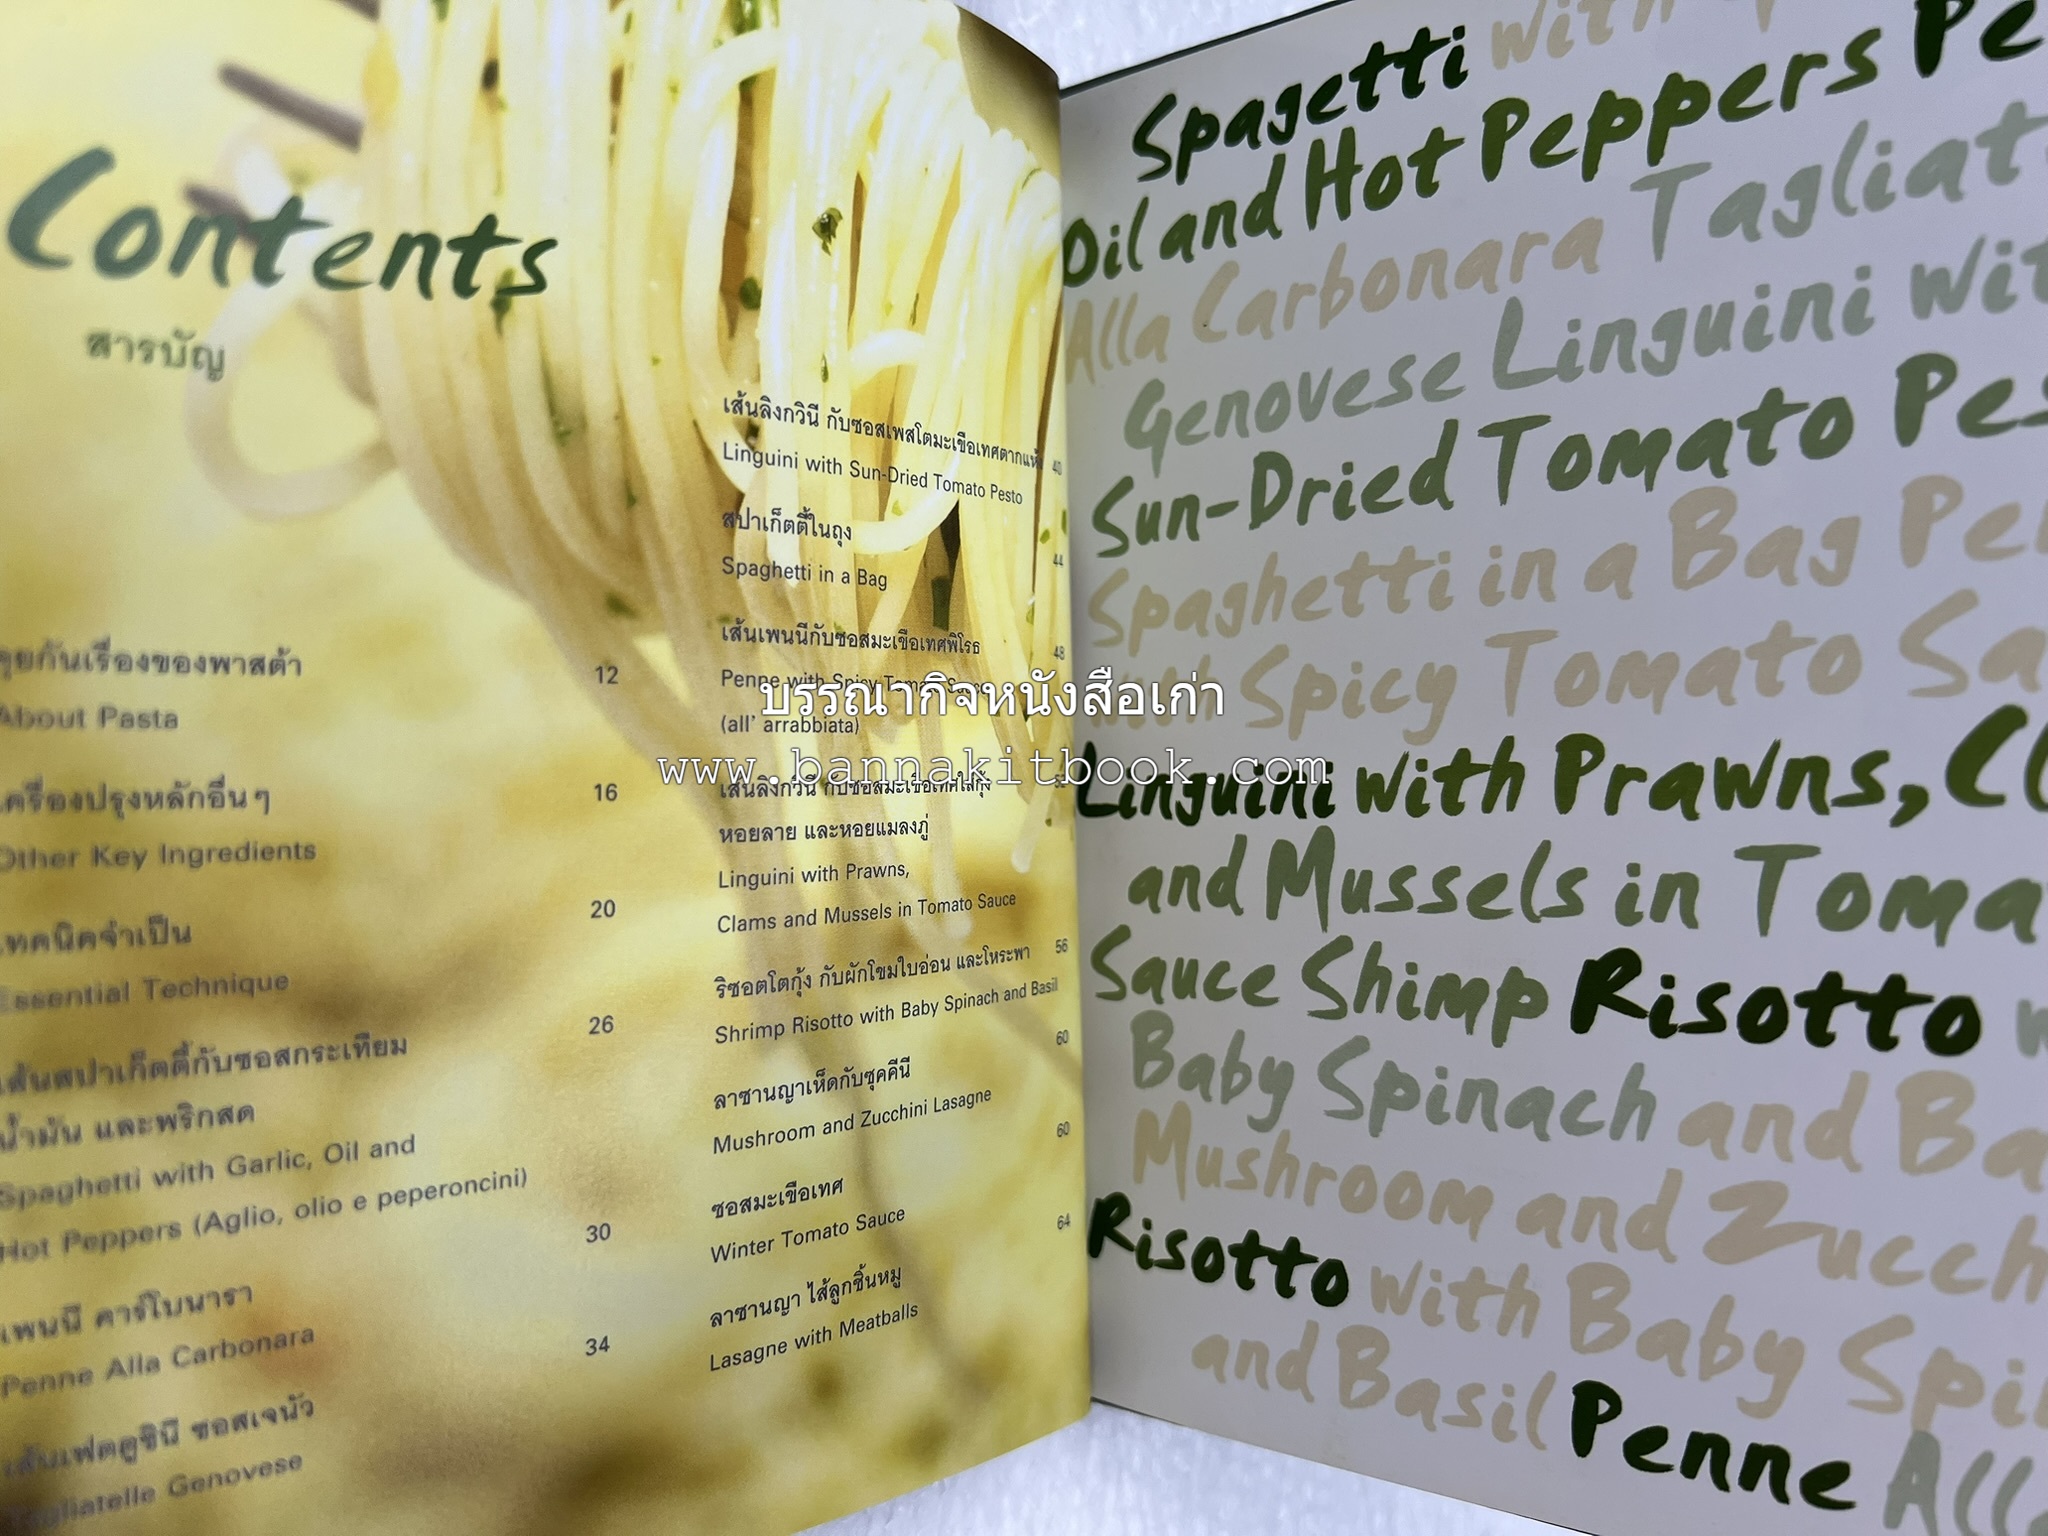 Contents
สารบัญ
คุยกันเรื่องของพาสต้า
12
About Pasta
เครื่องปรุงหลักอื่นๆ
16
Other Key Ingredients
เทคนิคจำเป็น
20
Essential Technique
เส้นสปาเก็ตตี้กับซอสกระเทียม
26
น้ำมัน และพริกสด
Spaghetti with Garlic, Oil and
Hot Peppers (Aglio, olio e peperoncini)
เพนนี คาร์โบนารา
30
Penne Alla Carbonara
เส้นเฟตตูชินี ซอสเจนัว
34
Tagliatelle Genovese
เส้นลิงกวินี กับซอสเพสโตมะเขือเทศตากแห้ง 40
Linguini with Sun-Dried Tomato Pesto
สปาเก็ตตี้ในถุง
44
Spaghetti in a Bag
เส้นเพนนีกับซอสมะเขือเทศพิโรธ
48
Penne with Spicy Tomato
(all' arrabbiata)
เส้นลิงกวินี กับซอสมะเขือเทศใส่กุ้ง
52
หอยลาย และหอยแมลงภู่
Linguini with Prawns,
Clams and Mussels in Tomato Sauce
ริซอตโตกุ้ง กับผักโขมใบอ่อน และโหระพา 56
Shrimp Risotto with Baby Spinach and Basil
ลาซานญาเห็ดกับซุคคีนี
60
Mushroom and Zucchini Lasagne
ซอสมะเขือเทศ
60
Winter Tomato Sauce
ลาซานญา ไส้ลูกชิ้นหมู
64
Lasagne with Meatballs
Spagetti with
Oil and Hot Peppers Pe
Alla Carbonara Tagliat
Genovese Linguini wit
Sun-Dried Tomato Pes
Spaghetti in a Bag Pe
with Spicy Tomato Sa
Linguini with Prawns, Cl
and Mussels in Toma
Sauce Shimp Risotto w
Baby Spinach and Ba
Mushroom and Zucch
Risotto with Baby Spi
and Basil Penne Alla
บรรณากิจหนังสือเก่า
www.bannakitbook.com